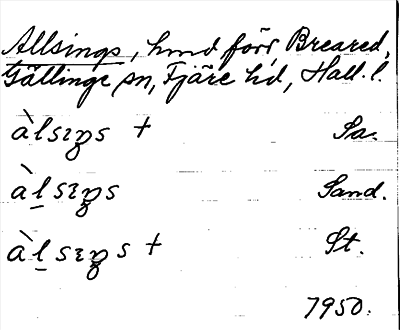 Allsings, hmd förr Breared,
Gällinge sn, Fjäre hd, Hall. l.
àlsɪŋs + Sa.
àl̲sɪŋs Sand.
àl̲sɪŋs + St.
1950.